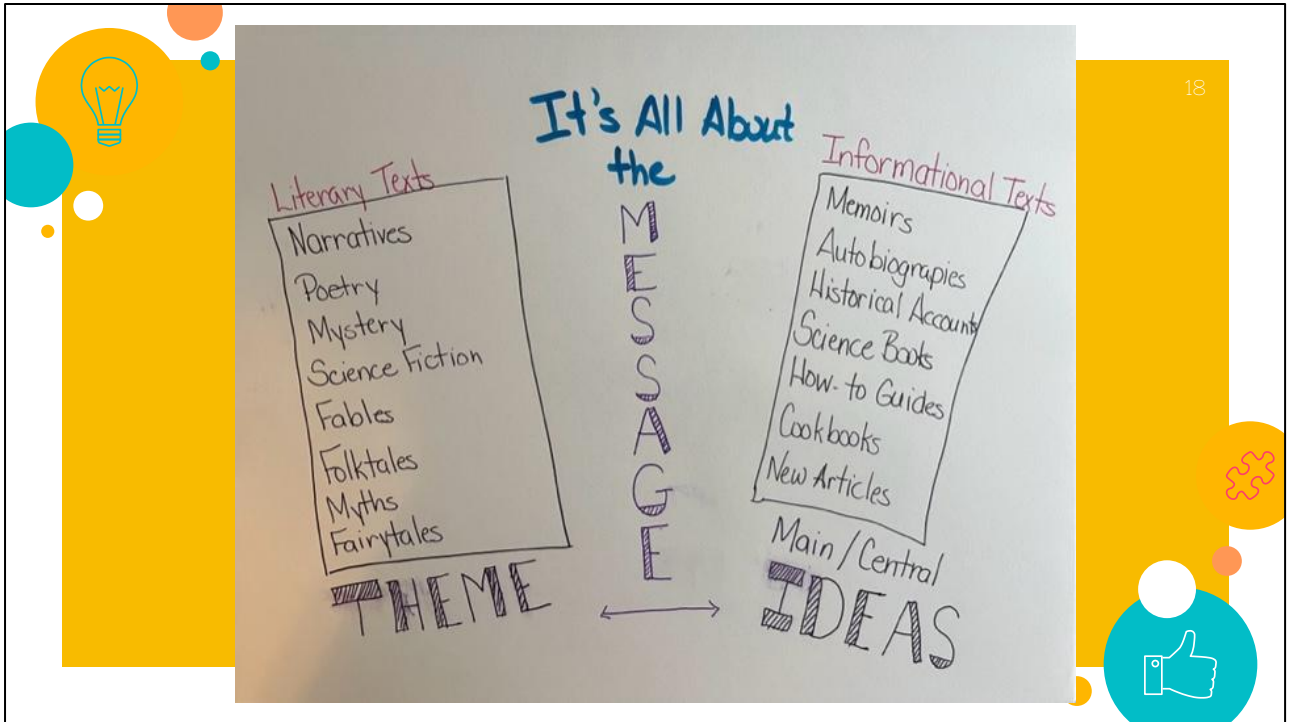 18
It's All About
the
MESSAGE
Literary Texts
Narratives
Poetry
Mystery
Science Fiction
Fables
Folktales
Myths
Fairytales
THEME
Informational Texts
Memoirs
Autobiograpies
Historical Accounts
Science Books
How-to Guides
Cookbooks
New Articles
Main/Central
IDEAS